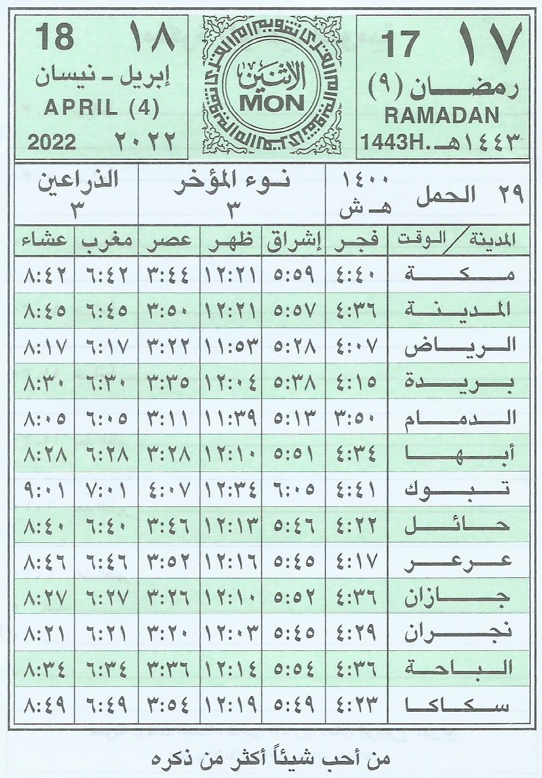 17 ١٧
رمضان (٩)
RAMADAN
1443H. ١٤٤٣هـ
الاثنين
MON
18 ١٨
إبريل - نيسان
APRIL (4)
2022 ٢٠٢٢
٢٩ الحمل ١٤٠٠ هـ ش
نوء المؤخر
٣
الذراعين
٣
المدينة / الوقت فجر إشراق ظهر عصر مغرب عشاء
مكة ٤:٤٠ ٥:٥٩ ١٢:٢١ ٣:٤٤ ٦:٤٢ ٨:٤٢
المدينة ٤:٣٦ ٥:٥٧ ١٢:٢١ ٣:٥٠ ٦:٤٥ ٨:٤٥
الرياض ٤:٠٧ ٥:٢٨ ١١:٥٣ ٣:٢٢ ٦:١٧ ٨:١٧
بريدة ٤:١٥ ٥:٣٨ ١٢:٠٤ ٣:٣٥ ٦:٣٠ ٨:٣٠
الدمام ٣:٥٠ ٥:١٣ ١١:٣٩ ٣:١١ ٦:٠٥ ٨:٠٥
أبها ٤:٣٤ ٥:٥١ ١٢:١٠ ٣:٢٨ ٦:٢٨ ٨:٢٨
تبوك ٤:٤١ ٦:٠٥ ١٢:٣٤ ٤:٠٧ ٧:٠١ ٩:٠١
حائل ٤:٢٢ ٥:٤٦ ١٢:١٣ ٣:٤٦ ٦:٤٠ ٨:٤٠
عرعر ٤:١٧ ٥:٤٥ ١٢:١٦ ٣:٥٢ ٦:٤٦ ٨:٤٦
جازان ٤:٣٦ ٥:٥٢ ١٢:١٠ ٣:٢٦ ٦:٢٧ ٨:٢٧
نجران ٤:٢٩ ٥:٤٥ ١٢:٠٣ ٣:٢٠ ٦:٢١ ٨:٢١
الباحة ٤:٣٦ ٥:٥٤ ١٢:١٤ ٣:٣٦ ٦:٣٤ ٨:٣٤
سكاكا ٤:٢٣ ٥:٤٩ ١٢:١٩ ٣:٥٤ ٦:٤٩ ٨:٤٩
من أحب شيئاً أكثر من ذكره